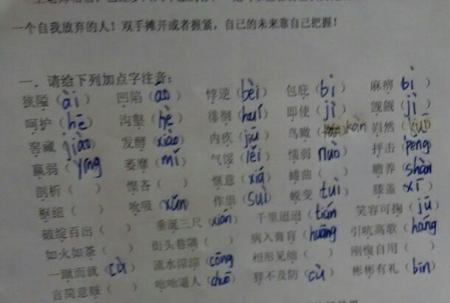 一个自我放弃的人！双手摊开或者握紧，自己的未来靠自己把握！
一．请给下列加点字注音：
狭隘（ài） 凹陷（ao） 悖逆（bèi） 包庇（bì） 麻痹（bì）
呵护（hē） 沟壑（hè） 徘徊（huí） 即使（jì） 觊觎（jì）
窖藏（jiào） 发酵（xiào） 内疚（jiū） 鸟瞰（kàn） 岿然（）
羸弱（yíng） 萎靡（mǐ） 气馁（lěi） 懦弱（nuò） 抨击（pēng）
剖析（） 悭吝（） 惬意（xiá） 蜷曲（） 赡养（shàn）
枢纽（） 吮吸（xǔn） 作祟（suì） 蜕变（tuì） 膝盖（xī）
破绽百出（） 垂涎三尺（xián） 千里迢迢（tián） 笑容可掬（jū）
如火如荼（） 街头巷隅（） 病入膏肓（huāng） 引吭高歌（háng）
一蹴而就（cù） 流水淙淙（cōng） 相形见绌（） 刚愎自用（）
言简意赅（） 咄咄逼人（chuō） 猝不及防（cù） 彬彬有礼（bīn）